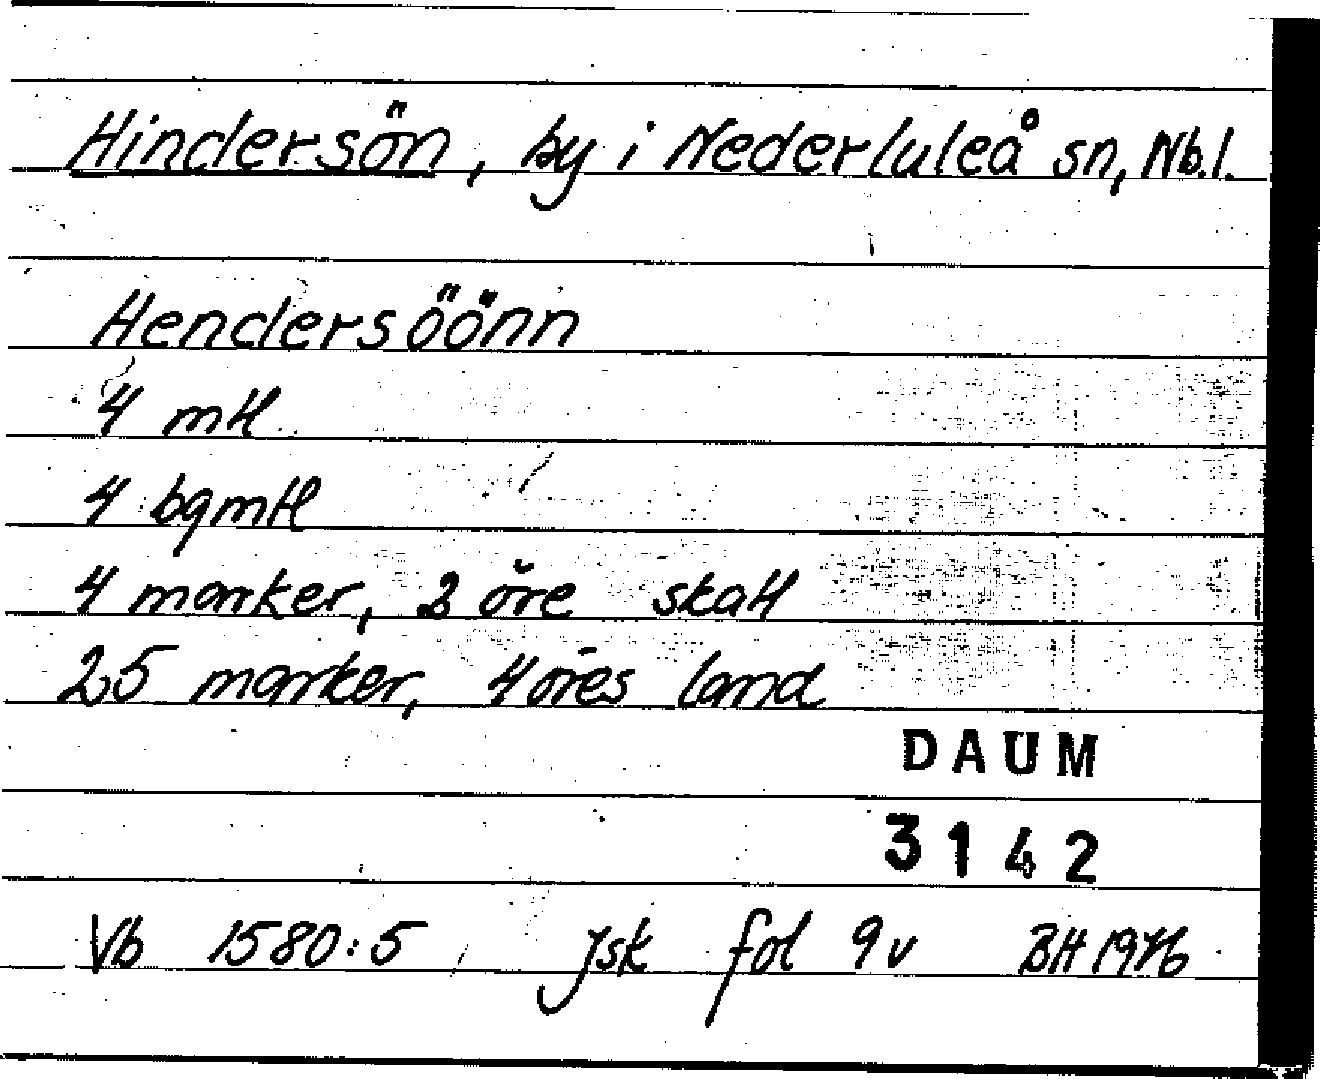 Hindersön, by i Nederluleå sn, Nb.l.
Hendersöönn
4 mtl
4 bgmtl
4 marker, 2 öre skatt
25 marker, 4 öres land
DAUM
3142
Vb 1580:5 Jsk fol 9v BH 1976